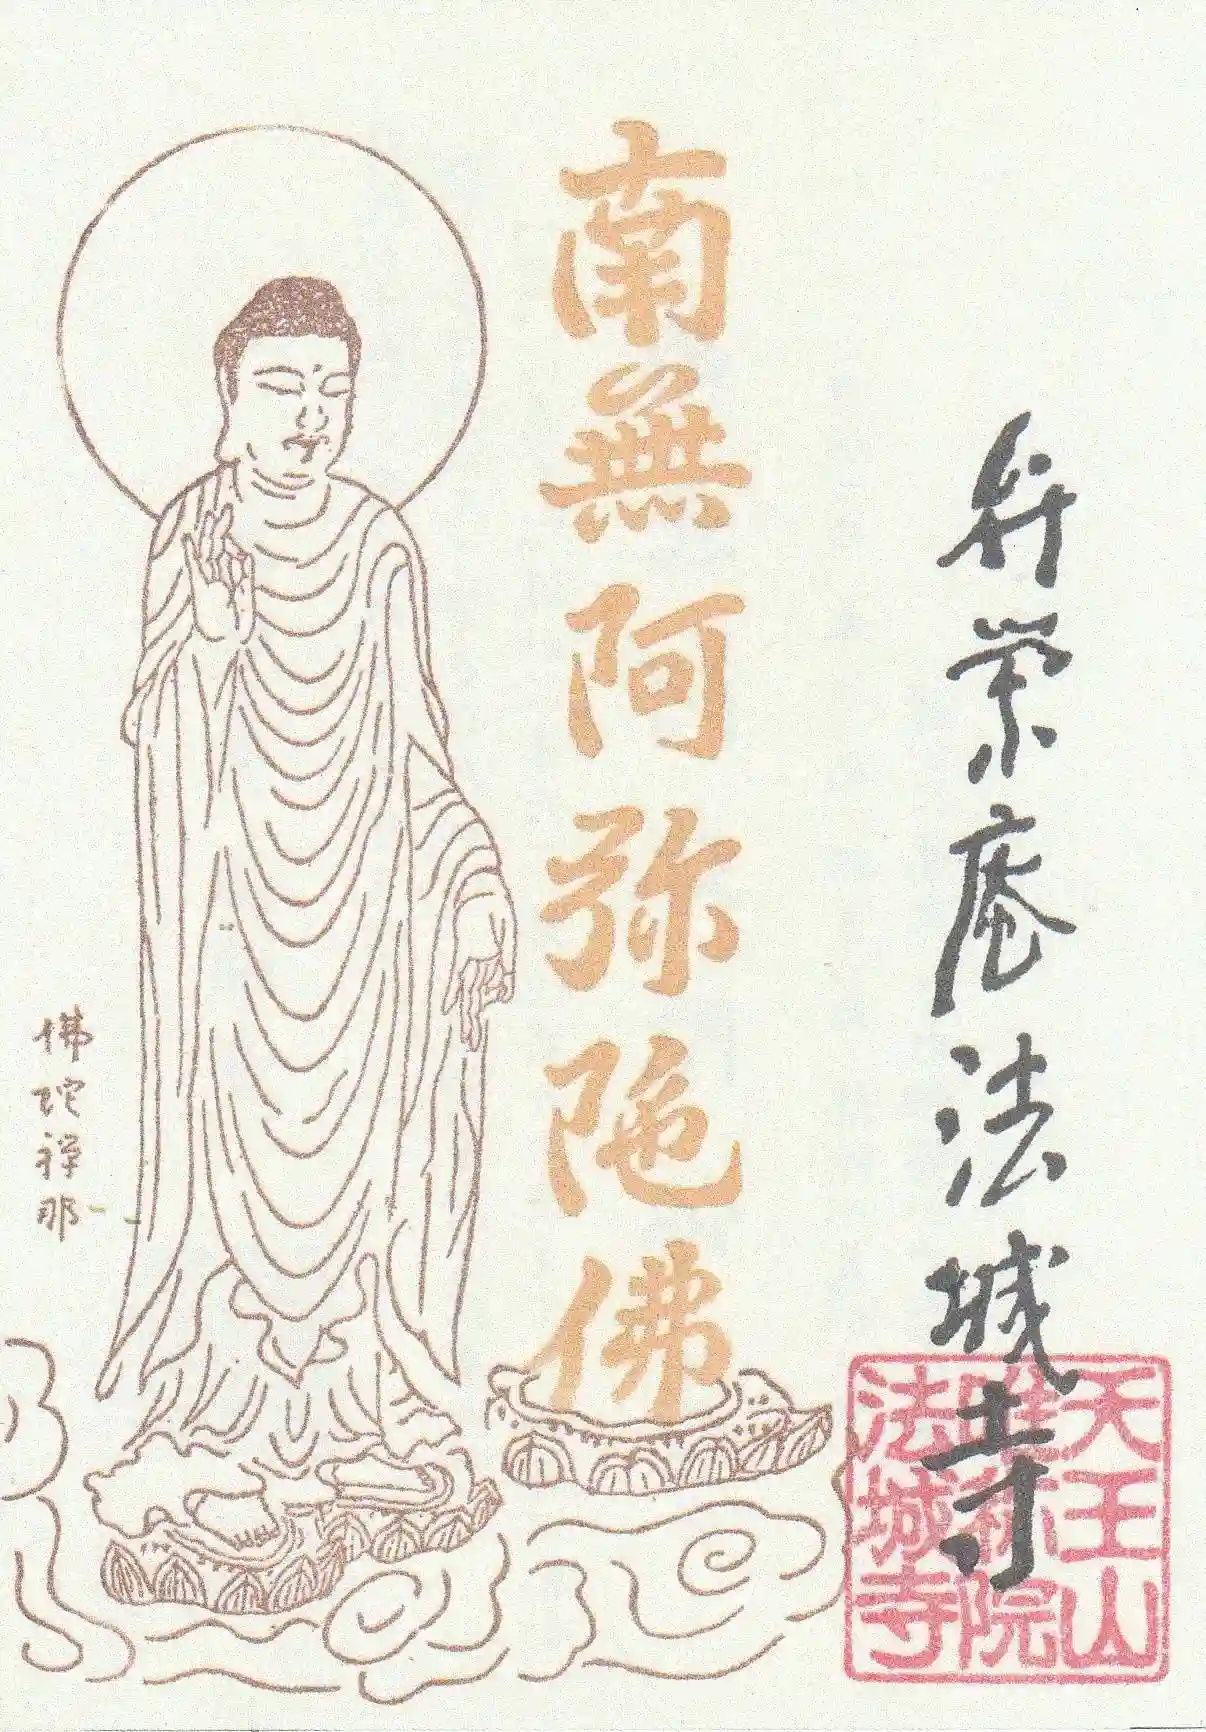 庵法城寺
天王山
唯称院
法城寺
南無阿弥陀佛
佛陀禅那